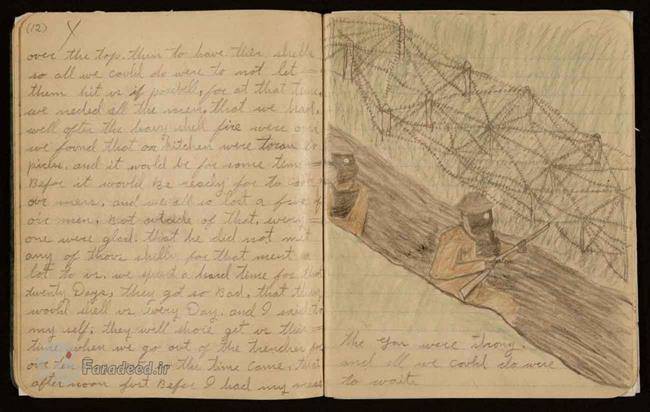 (12) X
over the top. then to have thier shells
so all we could do were to not let
them hit us if posibell, for at that time
we needed all the men, that we had,
well after the heavy shell fire were over
we found that our kitchen were toran to
pices. and it would be for some time
Befor it would Be ready for to cook
our meals, and we all so lost a few of
our men, But outside of that, every
one were glad. that he did not met
any of thoes shells for that ment a
lot to us. we spend a hard time for that
twenty Days, they got so Bad, that they
would shell us Every Day. and I said to
my self, they will shore get us this
time when we go out of the trenches for
our ten the time came, that
afternoon Just Befor I had my mess
the gas were strong.
and all we could do were
to wait
Faradeed.ir